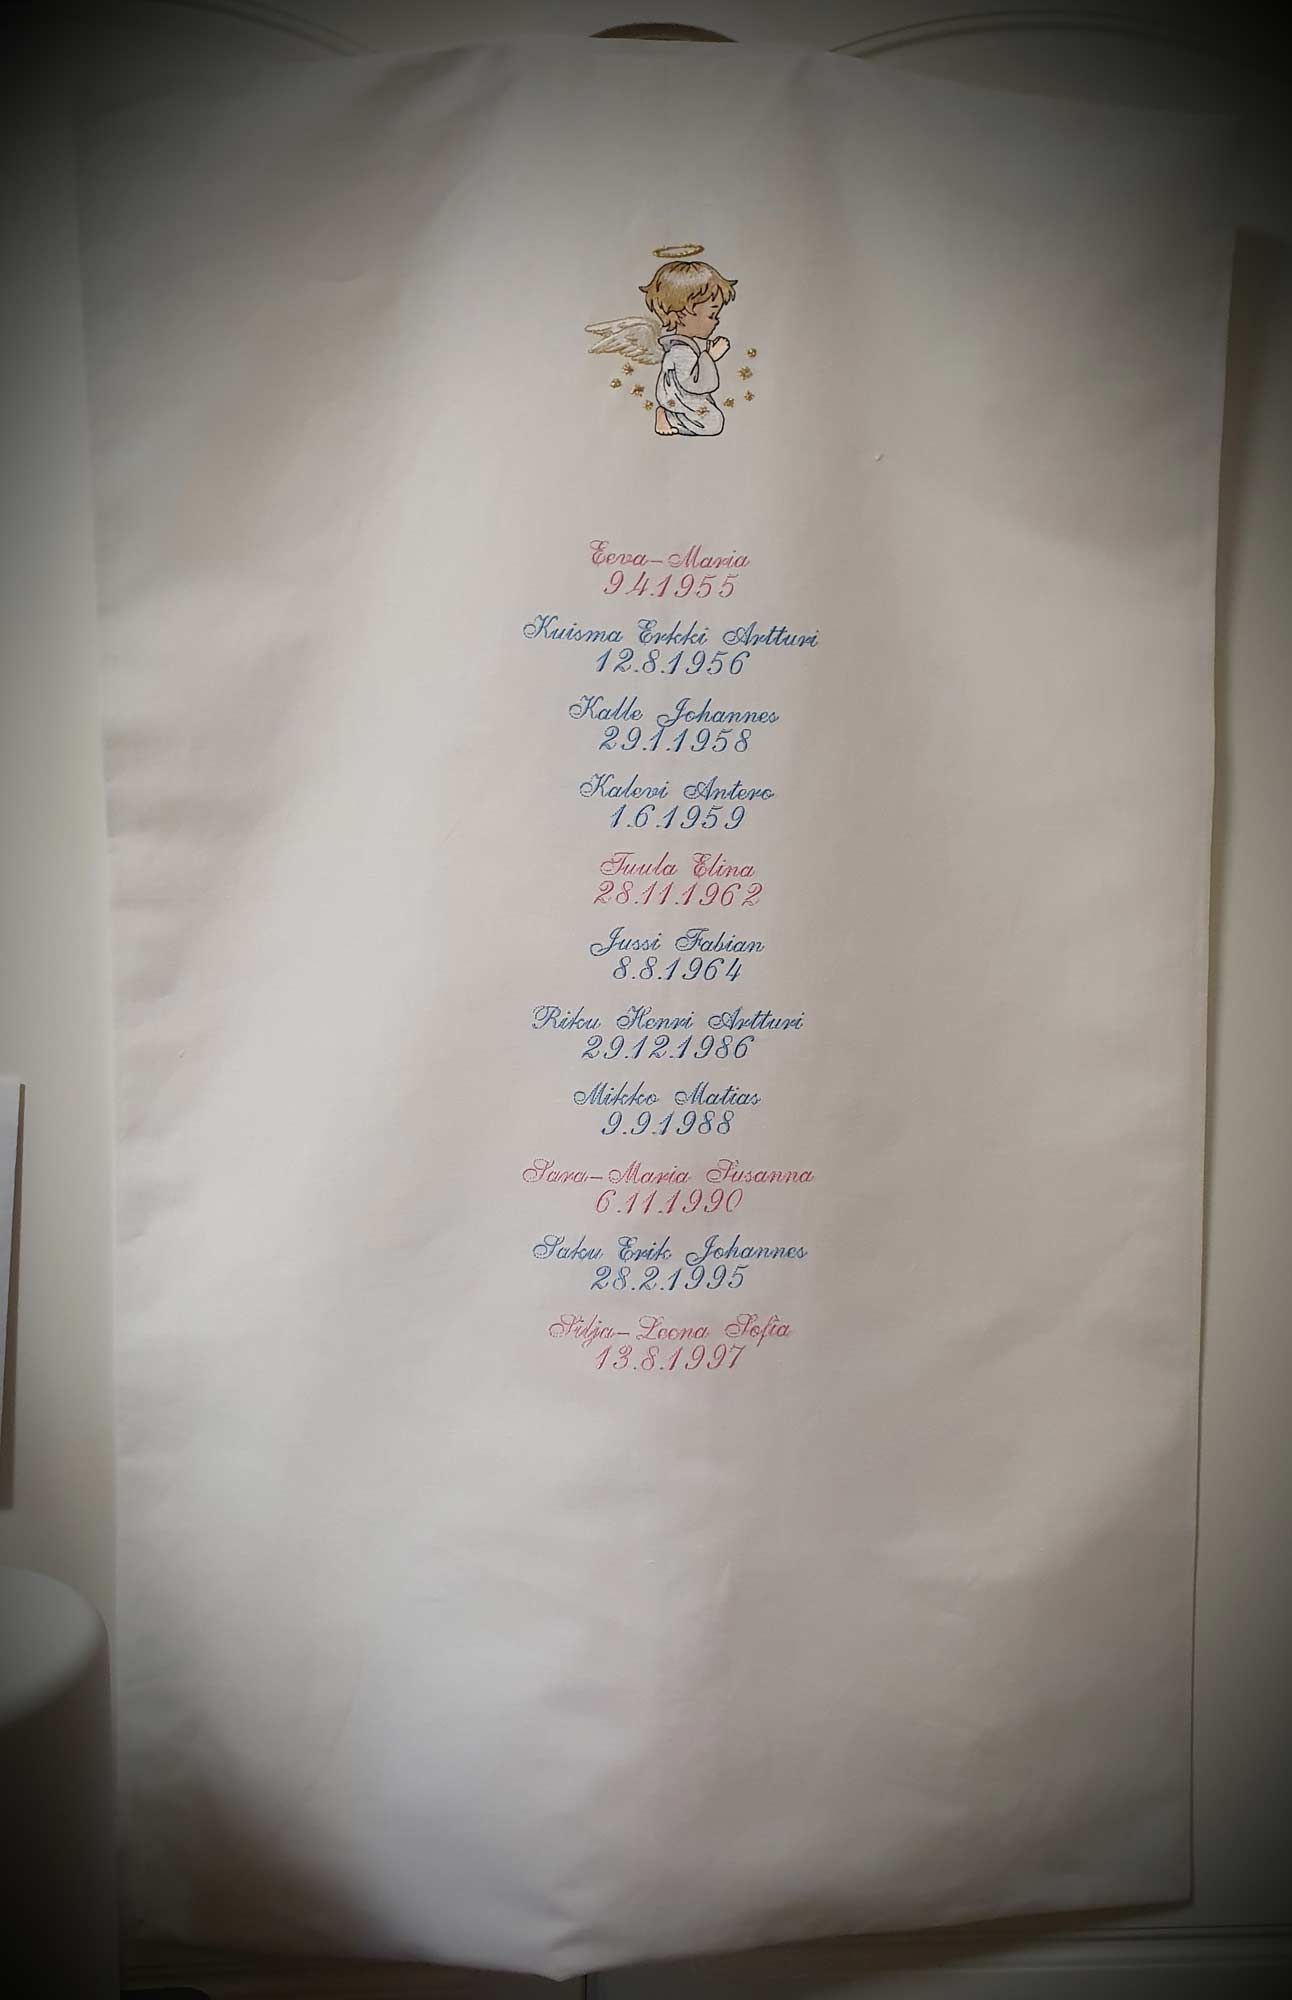 Eeva-Maria
9.4.1955
Kuisma Erkki Artturi
12.8.1956
Kalle Johannes
29.1.1958
Kalevi Antero
1.6.1959
Tuula Elina
28.11.1962
Jussi Fabian
8.8.1964
Riku Henri Artturi
29.12.1986
Mikko Matias
9.9.1988
Sara-Maria Susanna
6.11.1990
Saku Erik Johannes
28.2.1995
Silja-Leena Sofia
13.8.1997